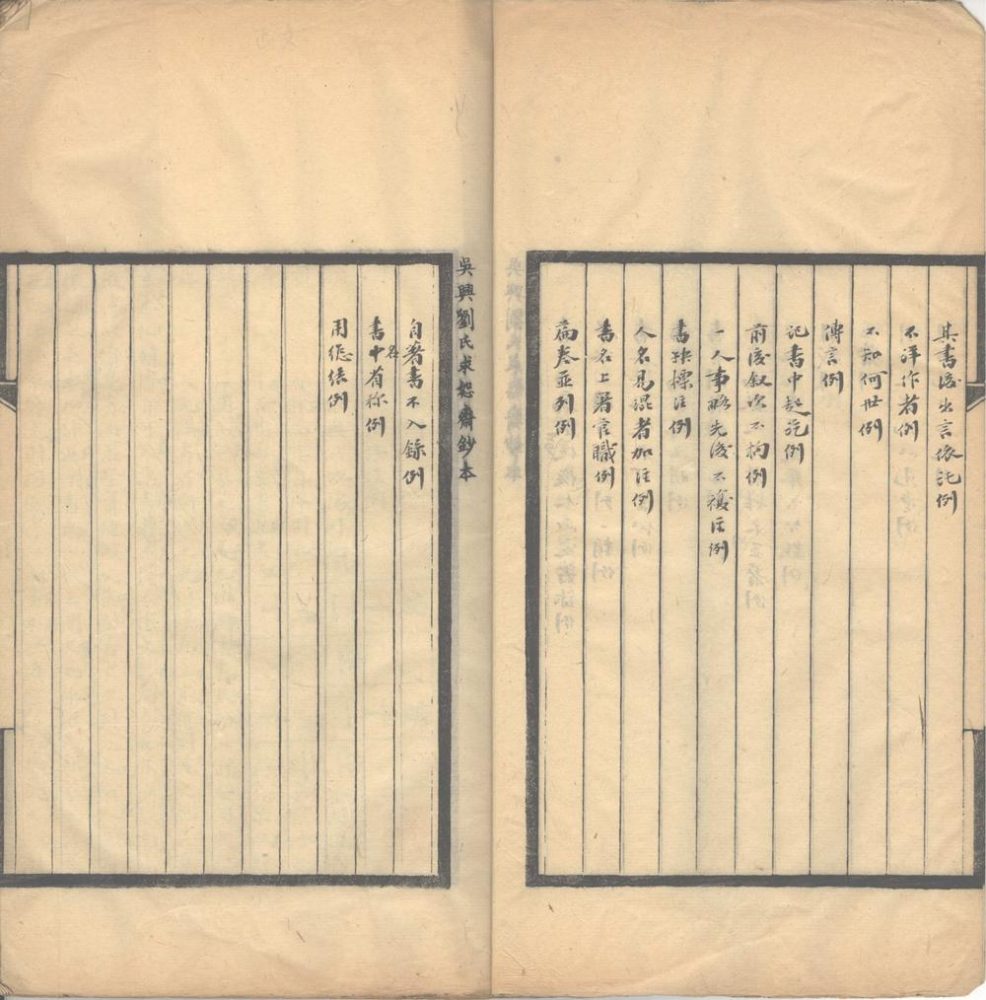 其書後出言依託例
不詳作者例
不知何世例
傳言例
記書中起訖例
前後敘次不拘例
一人事略先後不複注例
書缺標注例
人名易混者加注例
書名上著官職例
篇卷並列例
吳興劉氏求恕齋鈔本
自著書不入錄例
書中名有稱例